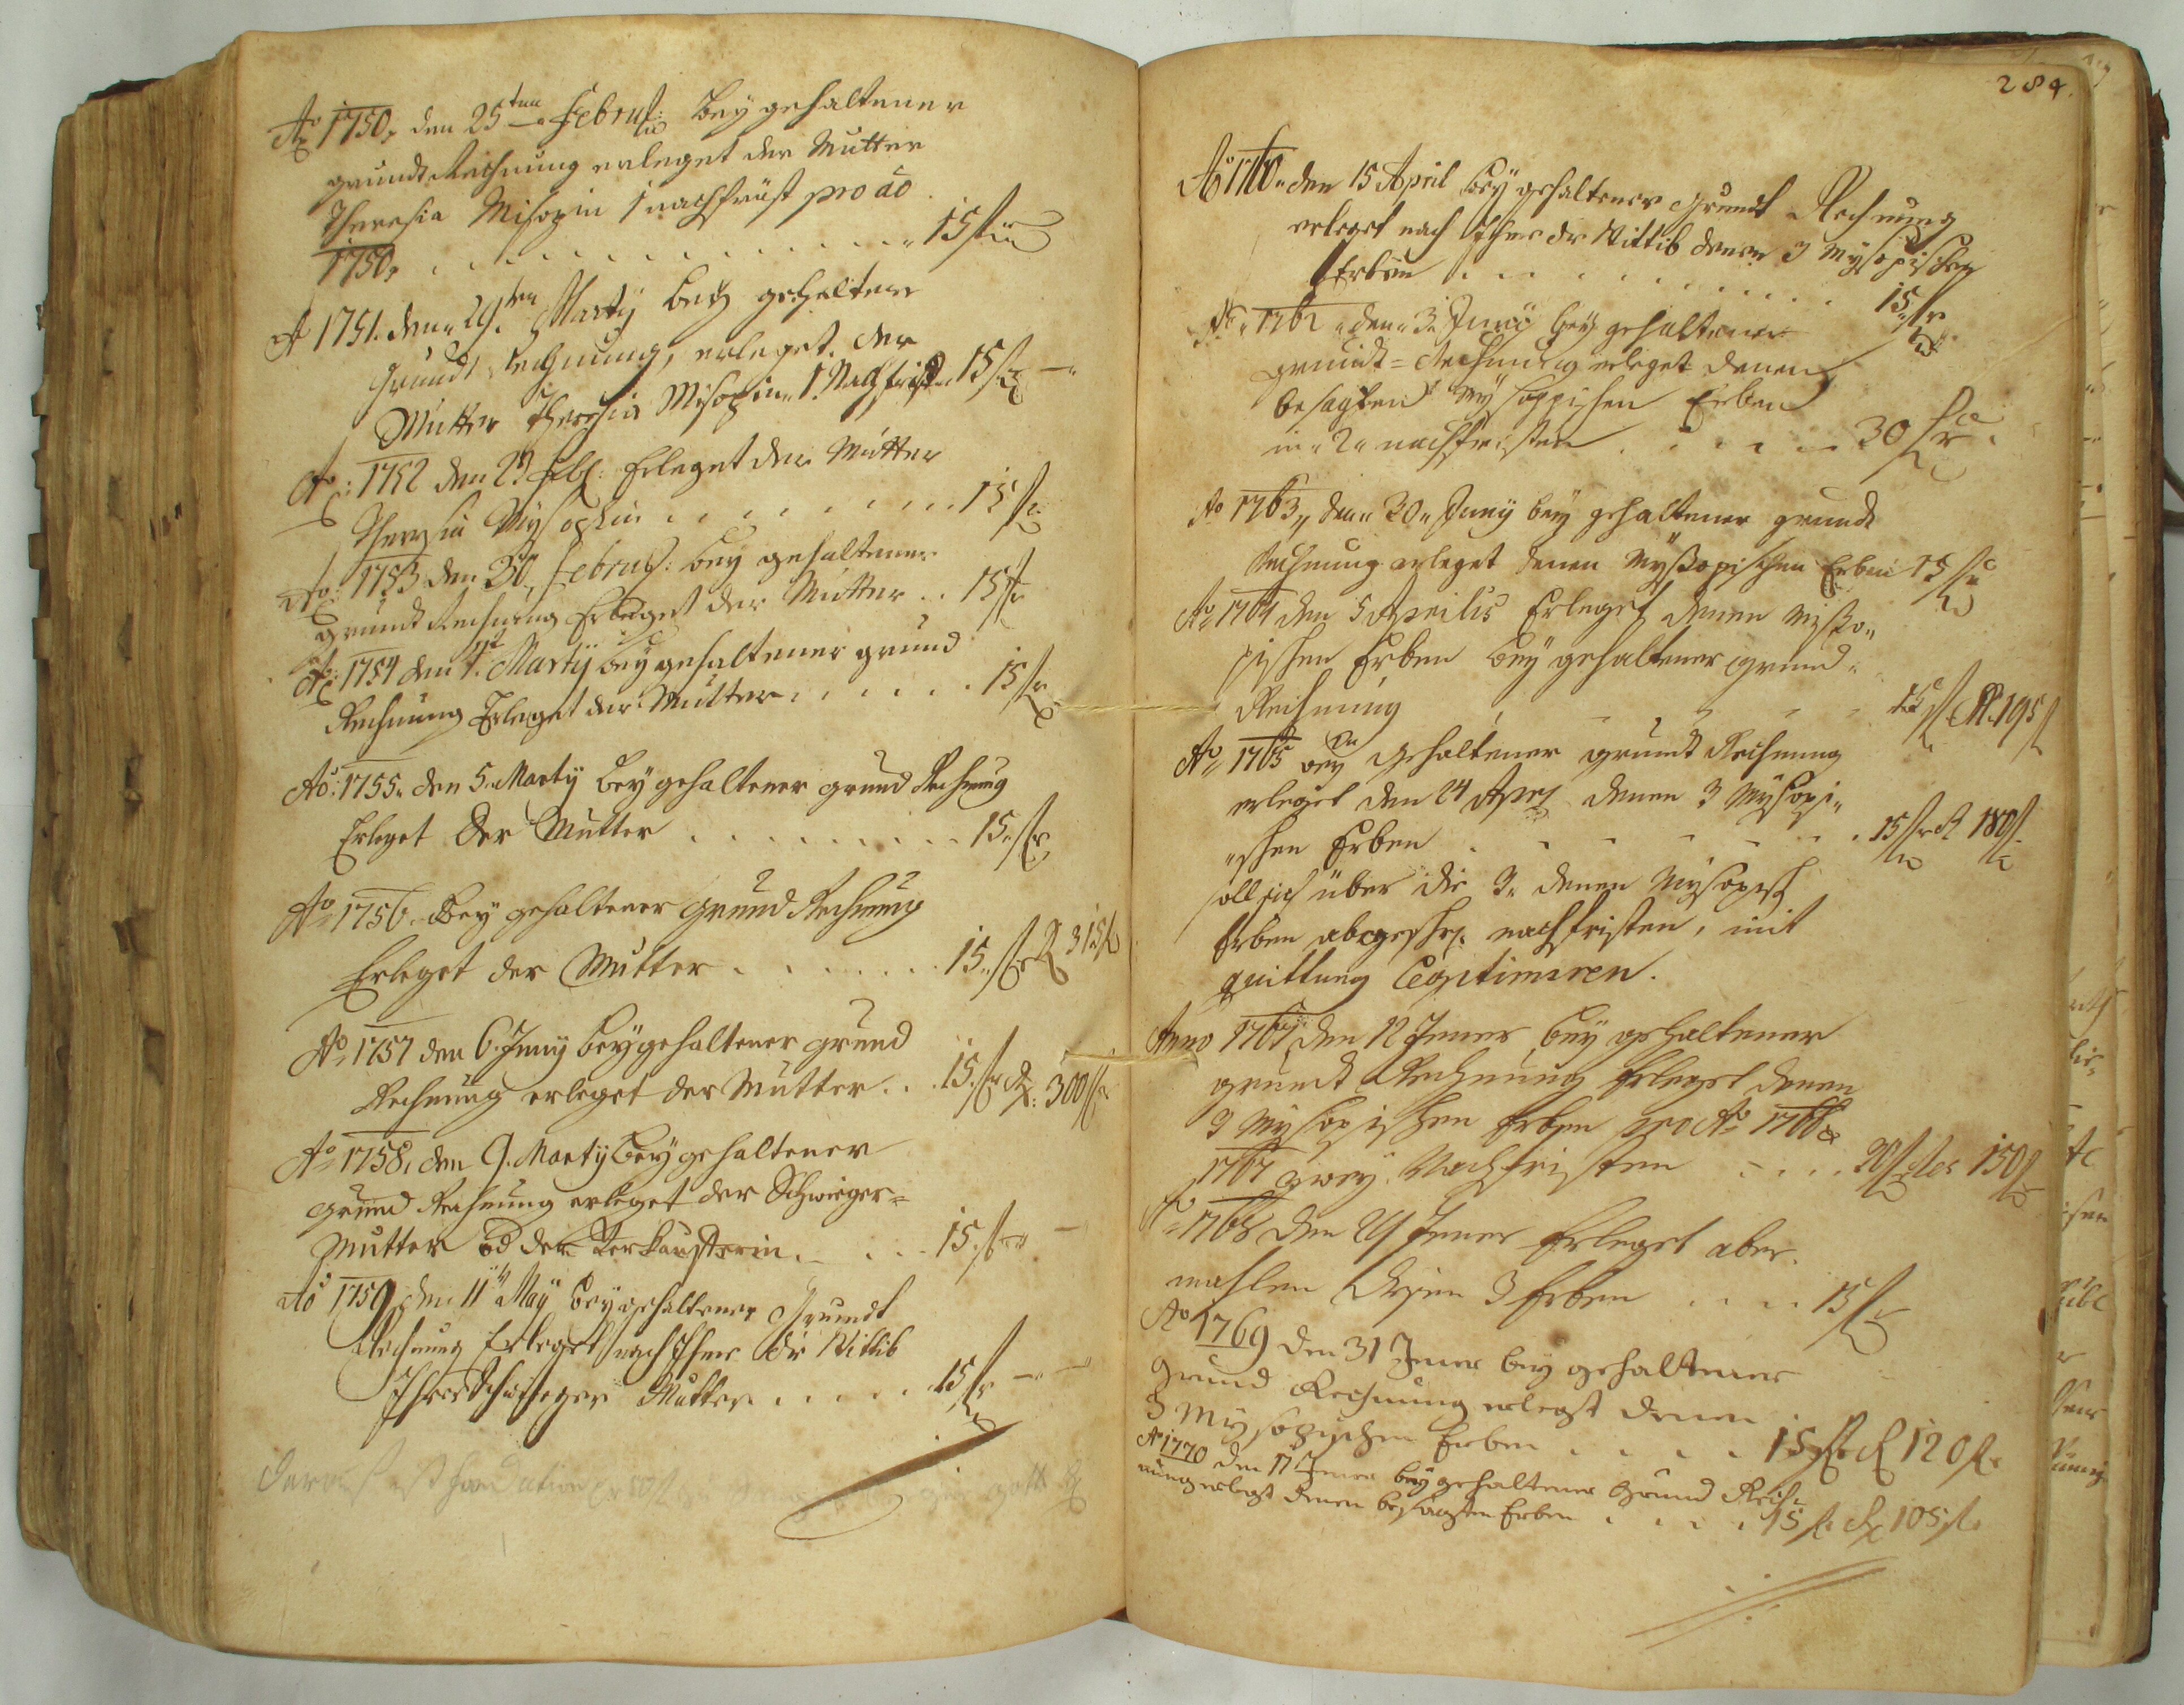 Ao 1750, den 25ten Febru: bey gehaltener
grundt Rechnung erleget der Mutter
Theresia Misopin 1 nachfrist pro ao
1750, . . . . . . . . . . 15 fl
A 1751. den 29ten Marty bey gehaltener
Grundt Rechnung, erleget. der
Mutter Theresia Misopin 1. Nachfrist 15 fl
Ao: 1752 den Feb: Erleget der Mutter
Theresia Mysopin . . . . . . . . 15 fl
Ao: 1753 den Februar: bey gehaltener
grundt Rechnung Erleget der Mutter . . 15 fl
Ao: 1754 den Marty bey gehaltener grund
Rechnung Erleget der Mutter . . . . . . 15 fl
Ao: 1755. den 5. Marty bey gehaltener grund Rechnung
Erleget der Mutter . . . . . . . . . 15. fl
Ao 1756. Bey gehaltener Grund Rechnung
Erleget der Mutter . . . . . . . 15. fl R 315 fl
Ao 1757 den 6. Juny bey gehaltener grund
Rechnung erleget der Mutter . . 15. fl R: 300 fl
Ao 1758, den 9. Marty bey gehaltener
grund Rechnung erleget der Schwieger=
Mutter od der Verkaufferin . . . . 15. fl
Ao 1759 den 11ten May bey gehaltener Grundt
Rechnung Erleget nach Ihme die Wittib
Ihrer Schwieger Mutter . . . . . 15 fl
284.
Ao 1760. den 15 April bey gehaltener grundt Rechnung
erleget nach Ihme die Wittib denen 3 Mysopischen
Erben . . . . . . . . . . . 15 fl
Ao. 1762 den 3. Juny bey gehaltener
grundt = Rechnung erleget denen
besagten Mysoppischen Erben
in 2 nachfristen . . . . . 30 fl
Ao 1763, den 20. Juny bey gehaltener grundt
Rechnung erleget denen Myßopischen Erben 15 fl
Ao 1764 den 5 Aprilis Erleget denen Mißo„
pischen Erben bey gehaltener grund„
Rechnung . . . . 15 fl R. 195 fl
Ao 1765 bey gehaltener grundt Rechnung
erleget den 24 Apr denen 3 Mysopi„
„schen Erben . . . . . . 15 fl R 180 fl
soll sich über die denen Mysopisch
Erben abgeschr. nachfristen, mit
quittung Legitimiren.
Anno 1767 den 12 Jener bey gehaltener
grundt Rechnung Erleget denen
3 Mysopischen Erben pro Ao 1766 &
1767 zwey Nachfristen . . . . 30 fl Rest 150 fl
Ao 1768 den Jener Erleget aber„
mahlen diesen 3 Erben . . . . 15 fl
Ao 1769 den 31 Jener bey gehaltener
Grund Rechnung erlegt denen
3 Mysopischen Erben . . . . . 15 fl R 120 fl.
Ao 1770 den 17 Jener bey gehaltener Grund Rech=
nung erlegt denen besagten Erben . . . . 15 fl. R 105 fl.